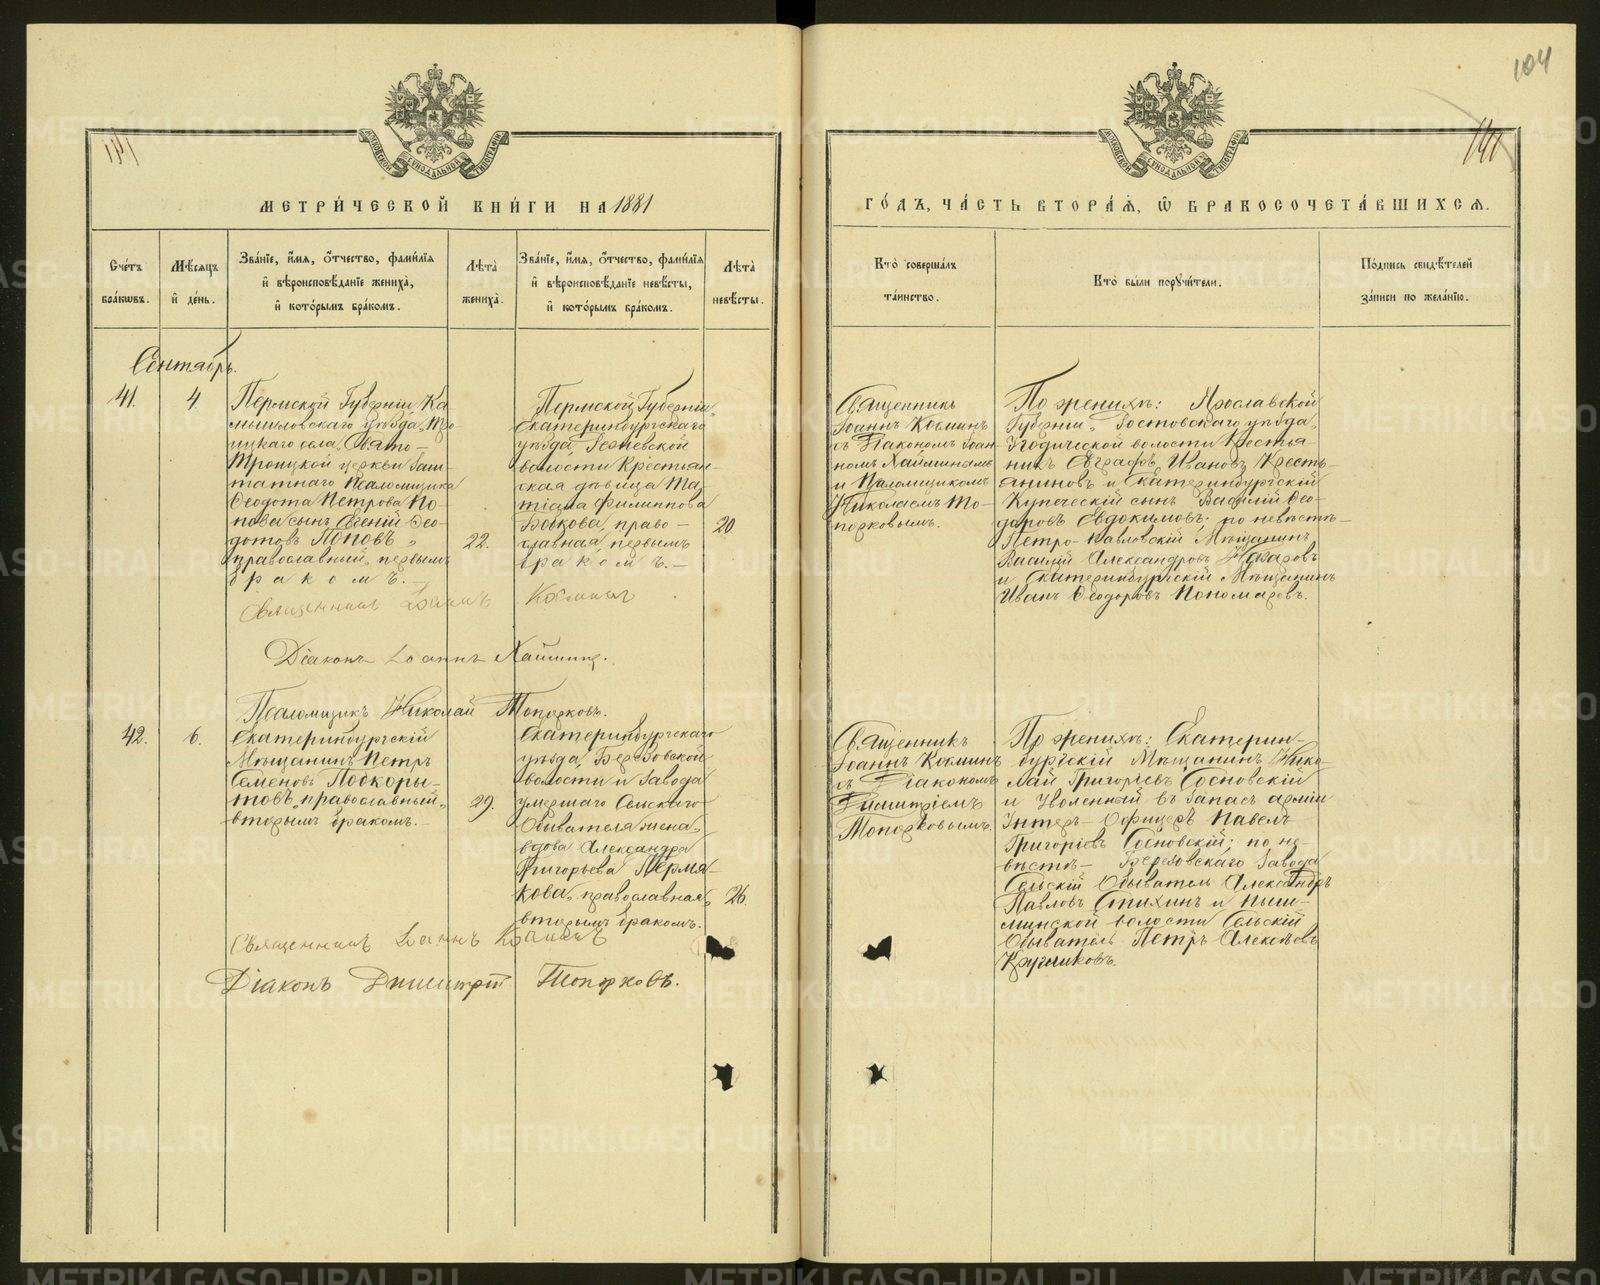 104
141
141
МОСКОВСКОЙ СѴНОДАЛЬНОЙ ТИПОГРАФІИ
МЕТРИ́ЧЕСКОЙ КНИ́ГИ НА 1881
Сче́тъ бра́кѡвъ.
Мѣ́сяцъ и҆ де́нь.
Зва́нїе, и҆́мя, ѻ҆́тчество, фами́лїя
и҆ вѣроисповѣ́данїе жениха̀,
и҆ кото́рымъ бра́комъ.
Лѣта̀ жениха̀.
Зва́нїе, и҆́мя, ѻ҆́тчество, фами́лїя
и҆ вѣроисповѣ́данїе невѣ́сты,
и҆ кото́рымъ бра́комъ.
Лѣта̀ невѣ́сты.
Сентябрь.
41.
4.
Пермской Губерніи, Ка-
мышловскаго уѣзда, Тро-
ицкаго села, Свято-
Троицкой церкви Заш-
татнаго Псаломщика
Ѳеодота Петрова По-
пова сынъ Евгеній Ѳео-
дотовъ Поповъ,
православный, первымъ
бракомъ.
22.
Пермской Губерніи,
Екатеринбургскаго
уѣзда,
волости Крестьян-
ская дѣвица Та-
тіана Филиппова
Бобкова, право-
славная, первымъ
бракомъ.
20
Священникъ Іоаннъ Космин
Діаконъ Іоаннъ Хаймин.
Псаломщикъ Николай Топорковъ.
42.
6.
Екатеринбургскій
Мѣщанинъ Петръ
Семеновъ Подкоры-
товъ, православный,
вторымъ бракомъ.
29.
Екатеринбургскаго
уѣзда, Березовской
волости и Завода
умершаго Сельскаго
Обывателя жена,
вдова Александра
Григорьева Пермя-
кова, православная,
вторымъ бракомъ.
26.
Священникъ Іоаннъ Косминъ
Діаконъ Димитрій Топорковъ.
ГО́ДЪ, ЧА́СТЬ ВТОРА́Я, Ѽ БРАКОСОЧЕТА́ВШИХСЯ.
Кто̀ соверша́лъ
та́инство.
Кто̀ бы́ли порꙋчи́тели.
По́дпись свидѣ́телей
за́писи по жела́нїю.
Священникъ
Іоаннъ Косминъ
съ Діакономъ Іоан-
номъ Хайминымъ
и Псаломщикомъ
Николаемъ То-
порковымъ.
По женихѣ: Ярославской
Губерніи, Ростовскаго уѣзда,
Угодической волости Крестья-
нинъ Евграфъ Ивановъ Кресть-
яниновъ и Екатеринбургскій
Купеческій сынъ Василій Ѳео-
доровъ Евдокимовъ; по невѣстѣ-
Петро-Павловскій Мѣщанинъ
Василій Александровъ Назаровъ
и Екатеринбургскій Мѣщанинъ
Иванъ Ѳеодоровъ Пономаревъ.
Священникъ
Іоаннъ Косминъ
съ Діакономъ
Димитріемъ
Топорковымъ.
По женихѣ: Екатерин-
бургскій Мѣщанинъ Нико-
лай Григоріевъ Сосновскій
и Уволенный въ Запасъ арміи
Унтеръ-Офицеръ Павелъ
Григоріевъ Сосновскій; по не-
вѣстѣ- Березовскаго Завода
Сельскій Обыватель Александръ
Павловъ Стихинъ и Пыш-
минской волости Сельскій
Обыватель Петръ Алексѣевъ
Кручинковъ.
METRIKI.GASO-URAL.RU